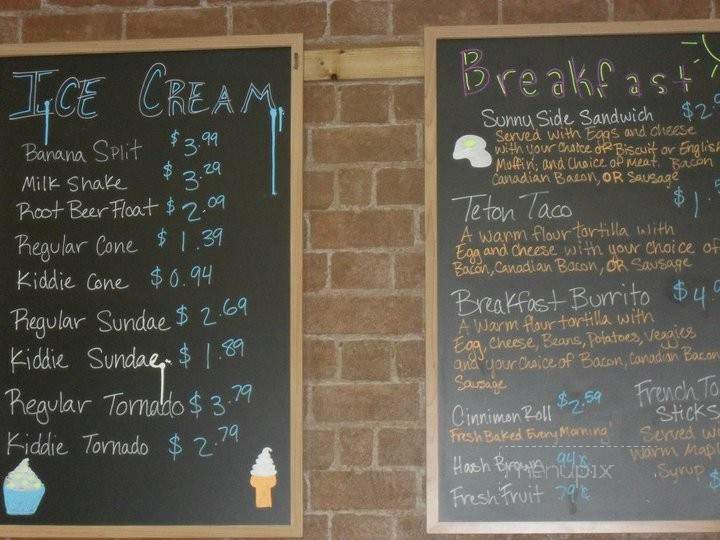 ICE CREAM
Banana Split $3.99
Milk Shake $3.29
Root Beer Float $2.09
Regular Cone $1.39
Kiddie Cone $0.94
Regular Sundae $2.69
Kiddie Sundae $1.89
Regular Tornado $3.79
Kiddie Tornado $2.79
Breakfast
Sunny Side Sandwich $2.
Served with Eggs and cheese
with your choice of Biscuit or English
Muffin, and choice of meat, Bacon
Canadian Bacon, OR Sausage
Teton Taco $1.
A warm flour tortilla with
Egg and cheese with your choice of
Bacon, Canadian Bacon, OR Sausage
Breakfast Burrito $4.
A warm flour tortilla with
Egg, Cheese, Beans, Potatoes, Veggies
and your choice of Bacon, Canadian Bacon
Sausage
Cinnimon Roll $2.59
Fresh Baked Every Morning
Hash Brown 94¢
Fresh Fruit 79¢
French To
Sticks
Served wi
warm Mapl
Syrup $
menupix